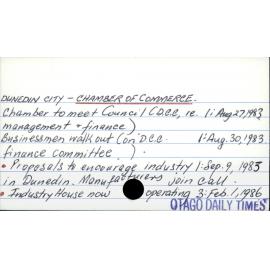 DUNEDIN CITY - CHAMBER OF COMMERCE.
Chamber to meet Council (D.C.C, re. 1: Aug 27, 1983
management & finance)
Businessmen walk out (on D.C.C. 1: Aug. 30, 1983
finance committee.)
• Proposals to encourage industry 1. Sep. 9, 1985
in Dunedin. Manufacturers join call.
• Industry House now operating 3: Feb. 1, 1986
OTAGO DAILY TIMES